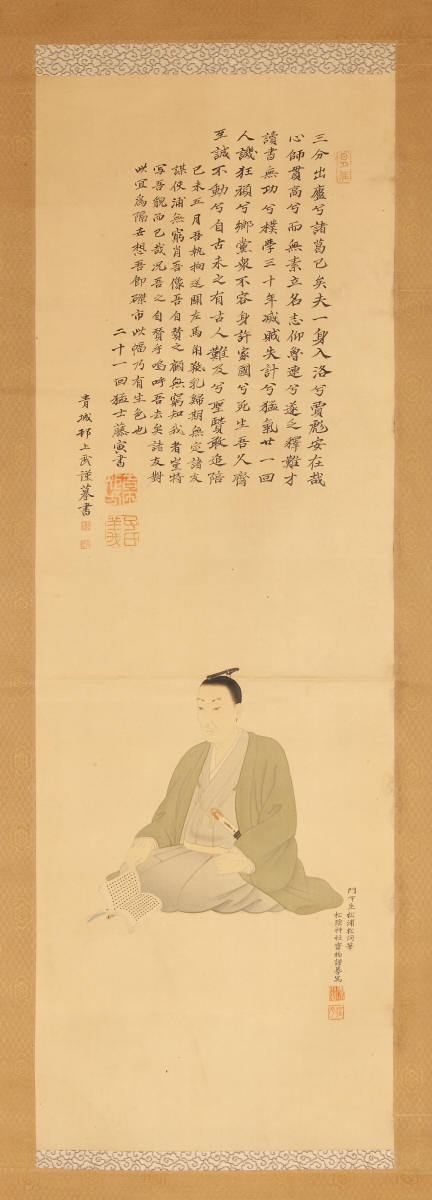 三分出廬兮諸葛已矣夫一身入洛兮賈彪安在哉
心師貫高兮而無素立名志仰魯連兮遂乏釋難才
讀書無功兮樸學三十年滅賊失計兮猛氣廿一回
人譏狂頑兮鄉黨衆不容身許家國兮死生吾久齊
至誠不動兮自古未之有古人難及兮聖賢敢追陪
己未五月吾執拘送關左馬角鞄乳歸期無定諸友
謀使浦無窮肖吾像吾自贊之顧無窮知我者豈特
写吾貌而已哉況吾之自贊乎嗚呼吾去矣諸友對
此宜為隔世想吾即磔市此幅乃有生色也
二十一回猛士藤寅書
青城邨上武謹摹書
門下生松浦松洞筆
松陰神社寶物謹摹寫